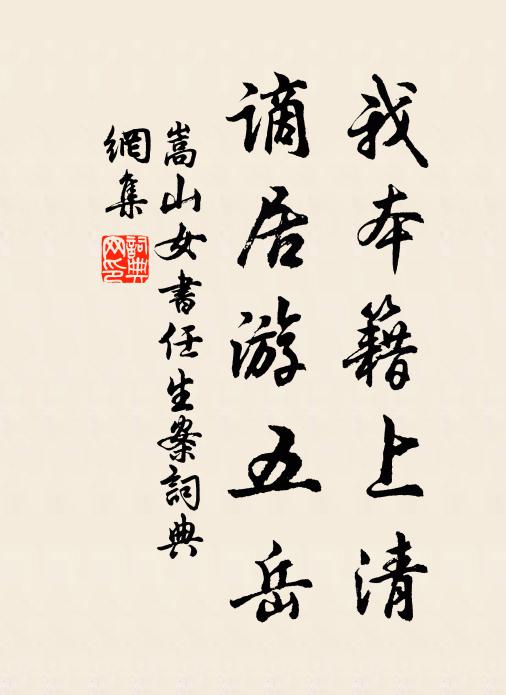 我本籍上清
谪居游五岳
嵩山女書任生案詞典
網集
詞典
网印